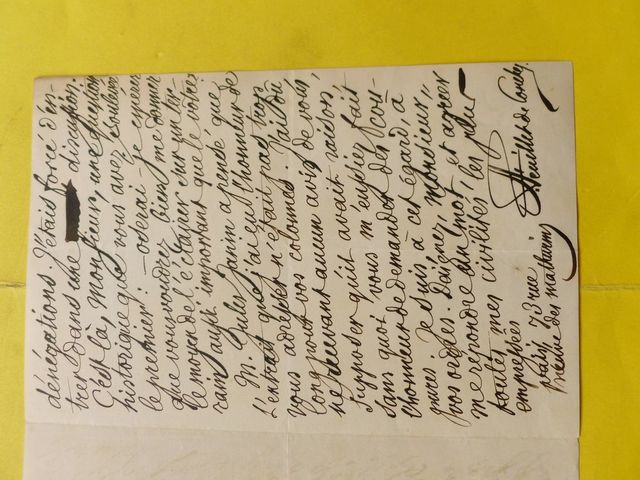 dénégations. J'étais forcé d'en-
trer dans une discussion.
C'est là, Monsieur, une question
historique que vous avez soulevée
le premier: oserai je espérer
que vous voudrez bien me donner
le moyen de l'éclaircir sur un ter-
rain aussi important que le vôtre?
M. Jules Janin a pensé que
l'extrait que j'ai eu l'honneur de
vous adresser n'était pas trop
long pour vos colonnes. J'ai dû
ne recevant aucun avis de vous,
supposer qu'il avait raison,
sans quoi vous m'eussiez fait
l'honneur de demander des cou-
pures. Je suis à cet égard, à
vos ordres. Daignez, monsieur,
me répondre un mot et agréer
toutes mes civilités les plus
empressées
Paris 37 rue
neuve des mathurins